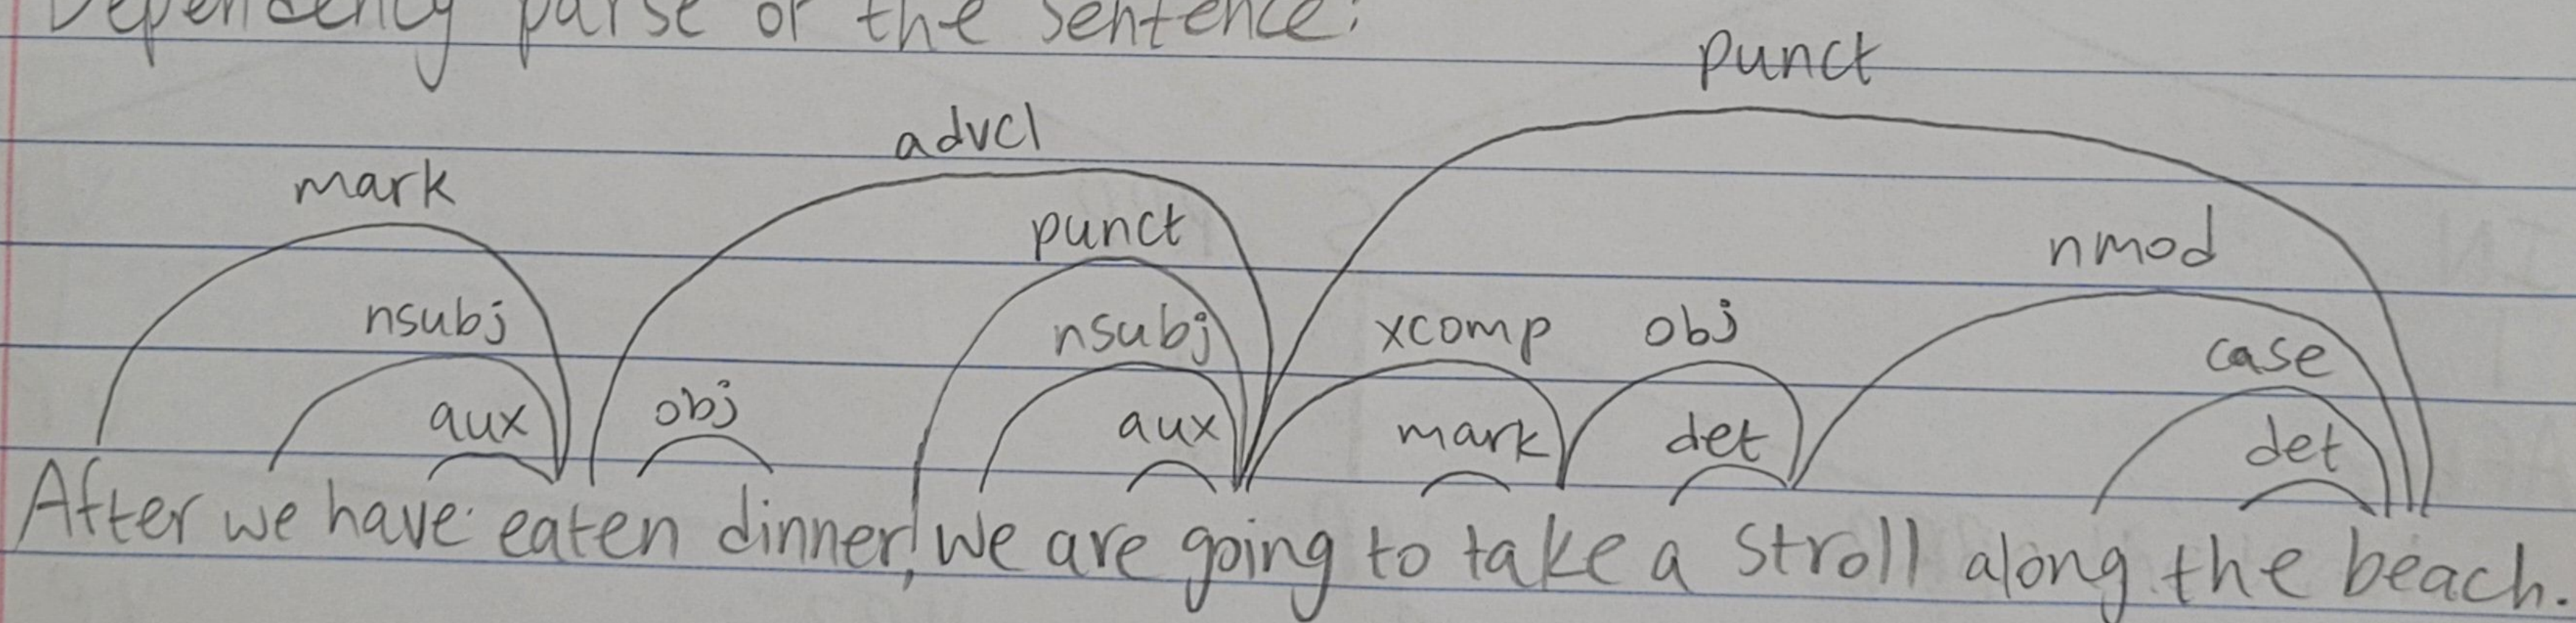 Dependency parse of the sentence:
punct
advcl
mark
punct
nmod
nsubj
nsubj
xcomp
obj
case
aux
obj
aux
mark
det
det
After we have eaten dinner, we are going to take a stroll along the beach.